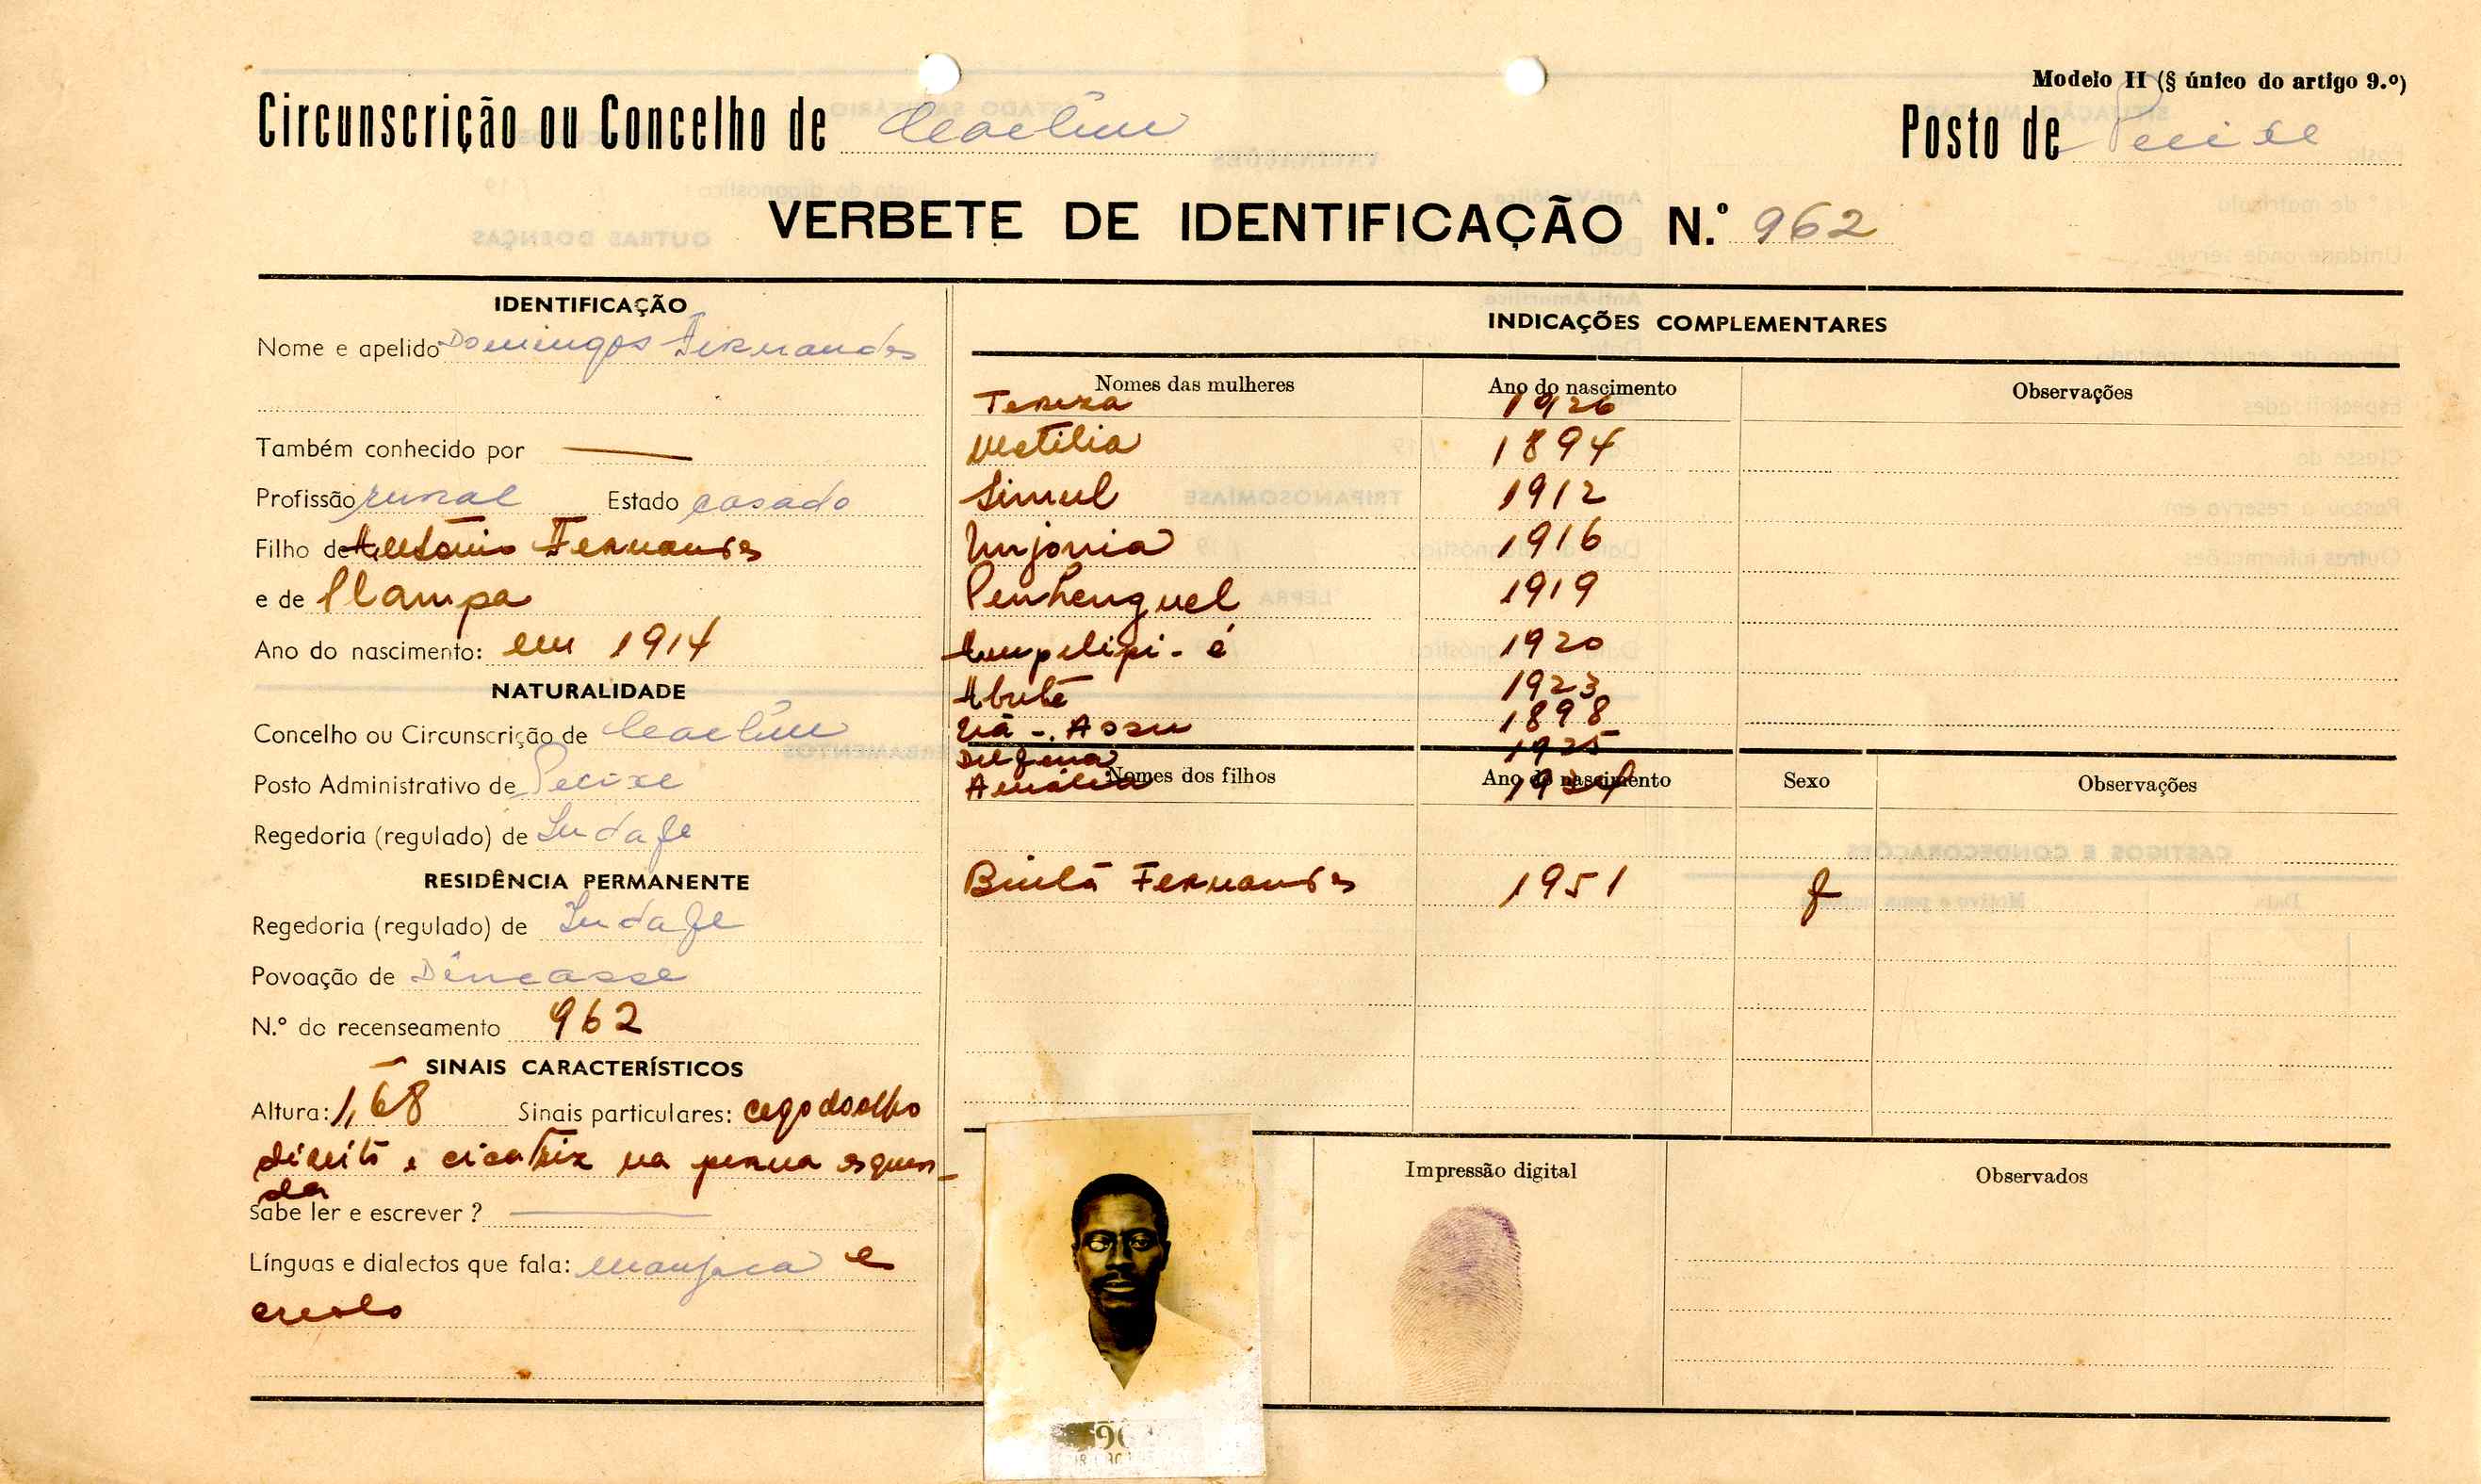 Modelo II (§ único do artigo 9.º)
Circunscrição ou Concelho de Cacheu
Posto de Pecixe
VERBETE DE IDENTIFICAÇÃO N.º 962
IDENTIFICAÇÃO
Nome e apelido Domingos Fernandes
Também conhecido por —
Profissão rural Estado casado
Filho de António Fernandes
e de
Ano do nascimento: em 1914
NATURALIDADE
Concelho ou Circunscrição de Cacheu
Posto Administrativo de Pecixe
Regedoria (regulado) de Indafe
RESIDÊNCIA PERMANENTE
Regedoria (regulado) de Indafe
Povoação de Dêncasse
N.º do recenseamento 962
SINAIS CARACTERÍSTICOS
Altura: 1,68 Sinais particulares: cego do olho
direito e cicatriz na perna esquer-
da
Sabe ler e escrever ? —
Línguas e dialectos que fala: manjaca e
creolo
INDICAÇÕES COMPLEMENTARES
Nomes das mulheres Ano do nascimento Observações
Tereza 1926
1894
Simul 1912
1916
Penhenguel 1919
1920
1923
1898
Delfena 1925
Amália
Nomes dos filhos Ano do nascimento Sexo Observações
Fernandes 1951 f
Impressão digital
Observados